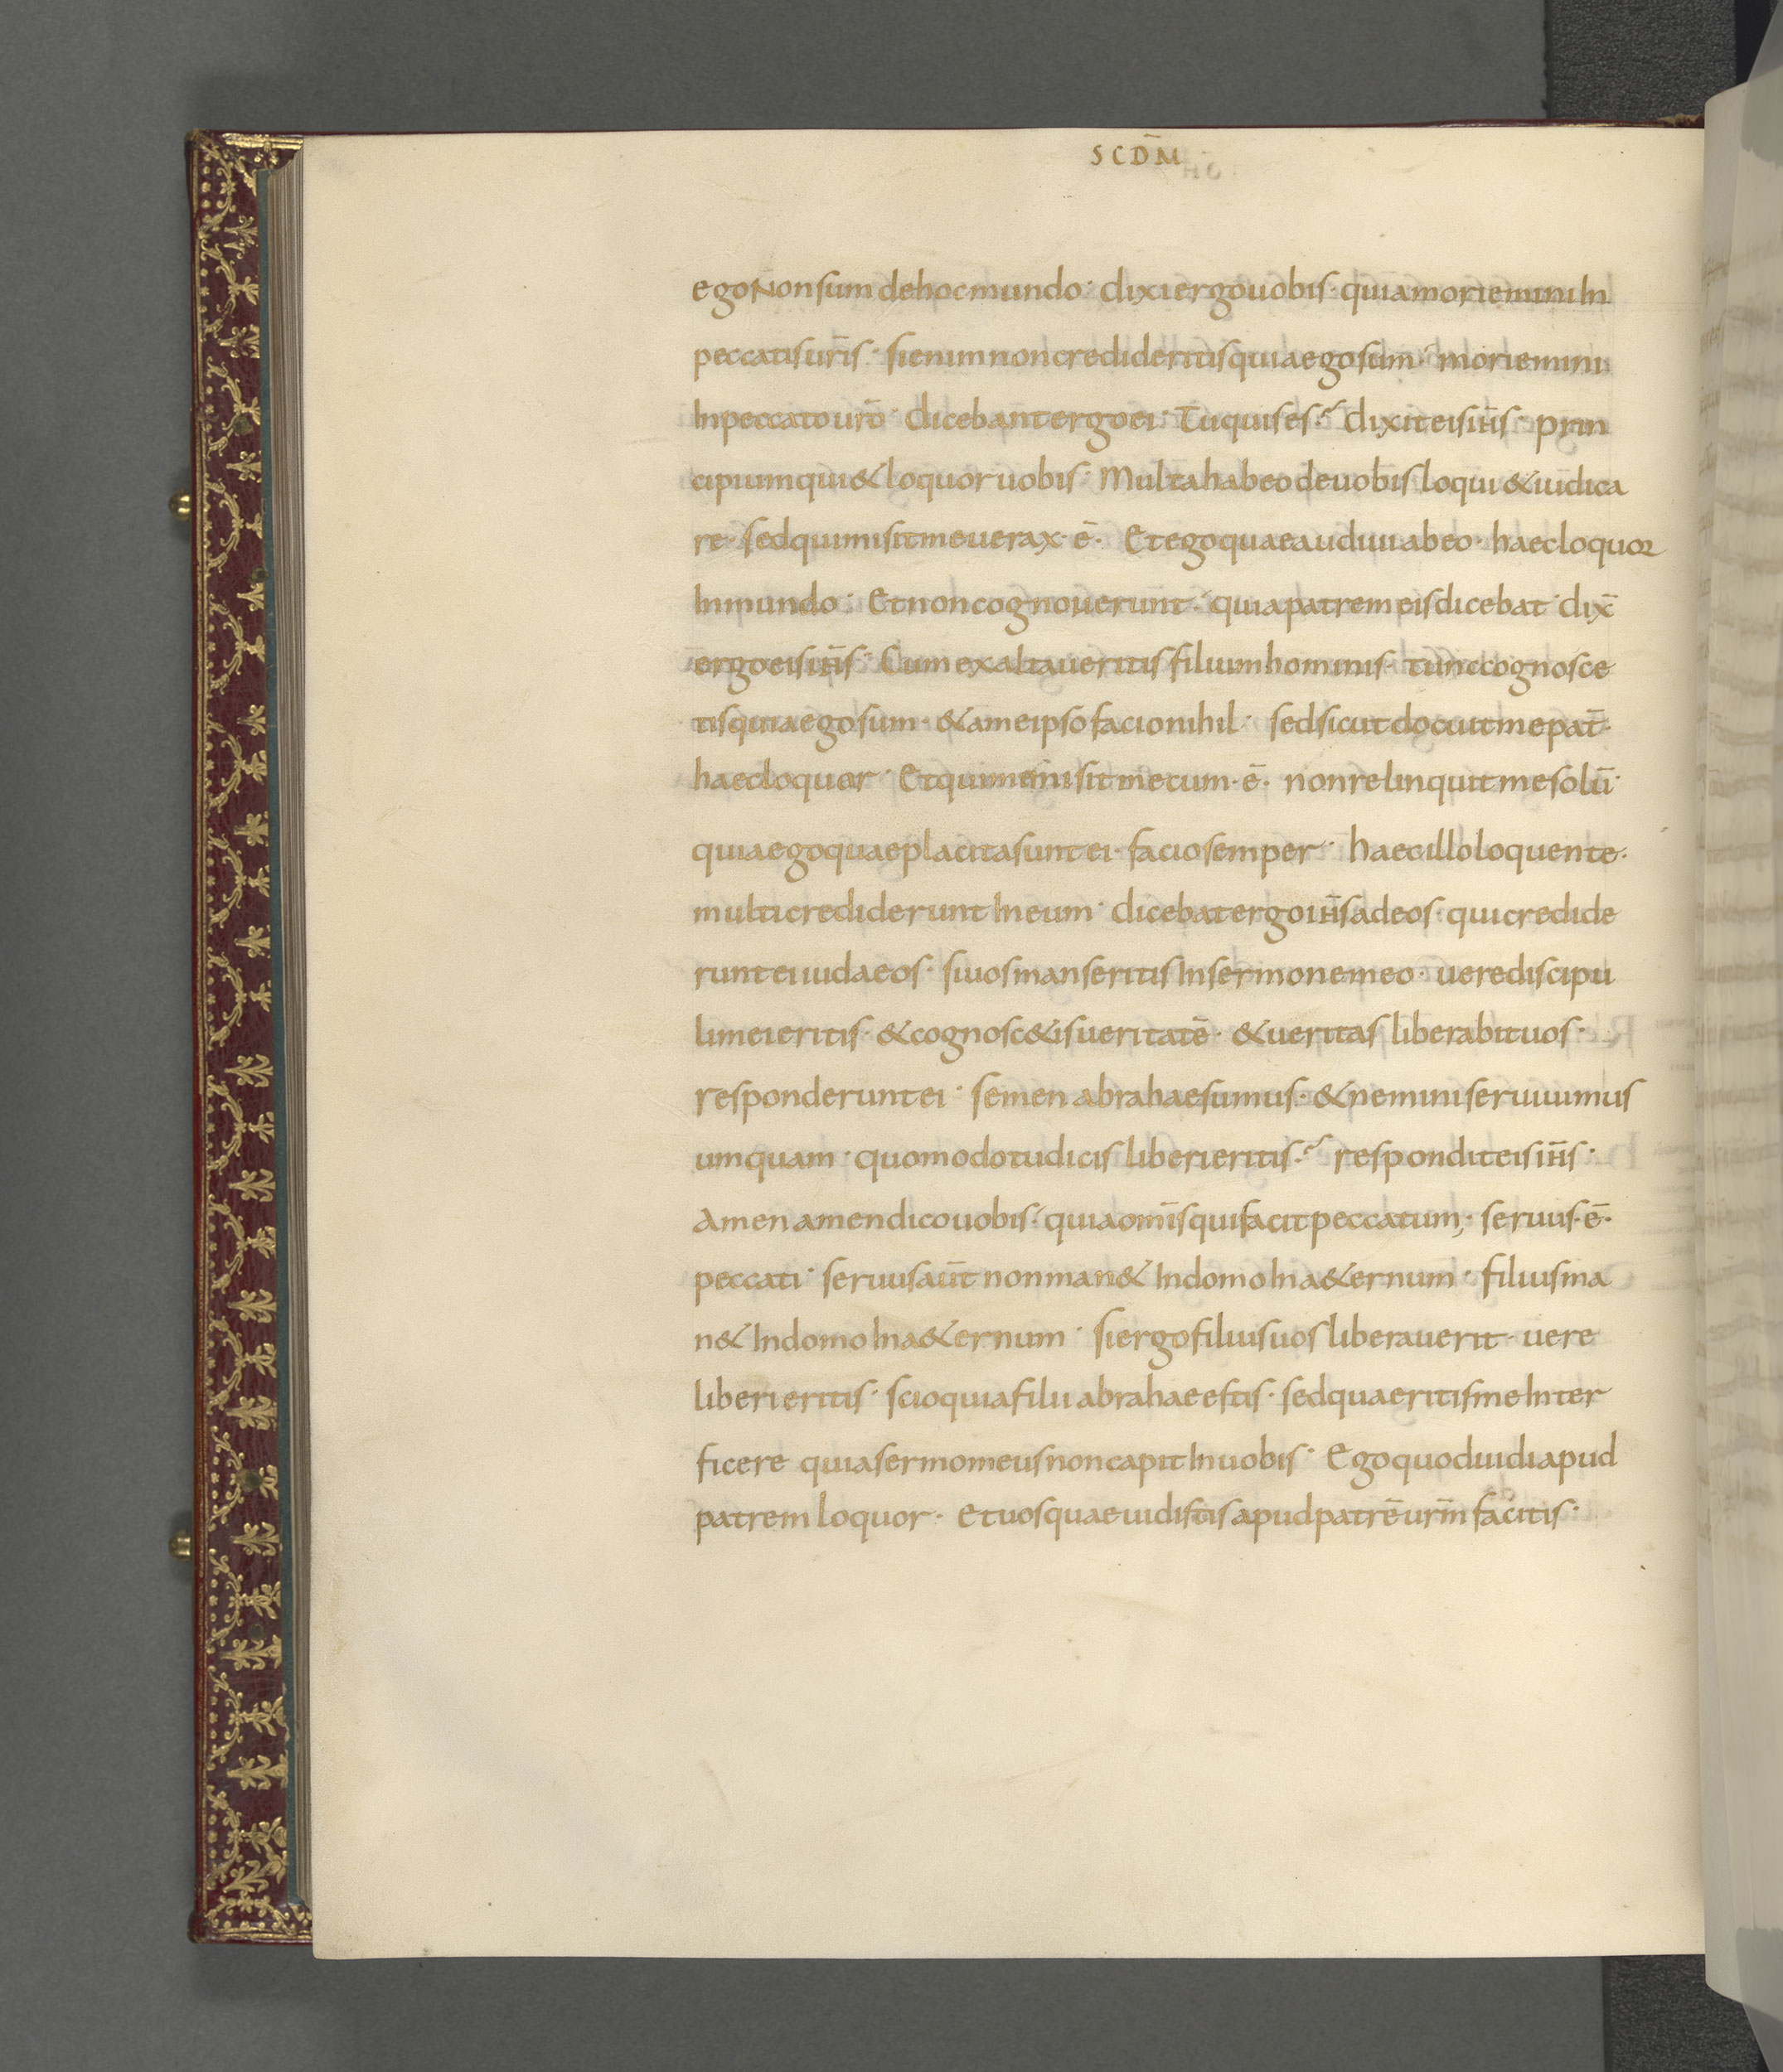 SCDM̄
ego Non sum de hoc mundo· dixi ergo uobis· quia moriemini In
peccatis ur̄is· si enim non credideritis quia ego sum· moriemini
In peccato ur̄o· dicebant ergo ei· Tu quis es·? dixit eis ih̄s· prin
cipium qui & loquor uobis· Multa habeo de uobis loqui & iudica
re· sed qui misit me uerax· ē· Et ego quae audiui ab eo· haec loquor
In mundo· Et non cognouerunt· quia patrem eis dicebat· dix̄
ergo eis ih̄s· Cum exaltaueritis filium hominis· tunc cognosce
tis quia ego sum· & a me ipso facio nihil· sed sicut docuit me pat̄·
haec loquor· Et qui me misit mecum· ē· non relinquit me solū·
quia ego quae placita sunt ei· facio semper· haec illo loquente·
multi crediderunt In eum· dicebat ergo ih̄s ad eos· qui credide
runt ei iudaeos· si uos manseritis In sermone meo· uere discipu
li mei eritis· & cognosc&is ueritatē· & ueritas liberabit uos·
responderunt ei· semen abrahae sumus· & nemini seruiuimus
umquam· quomodo tu dicis liberi eritis·? respondit eis ih̄s·
Amen amen dico uobis· quia om̄is qui facit peccatum,· seruus· ē·
peccati· seruus aūt non man& In domo In a&ernum· filius ma
n& In domo In a&ernum· si ergo filius uos liberauerit· uere
liberi eritis· scio quia filii abrahae estis· sed quaeritis me Inter
ficere quia sermo meus non capit In uobis· Ego quod uidi apud
patrem loquor· et uos quae uidistis apud patrē ur̄m facitis·